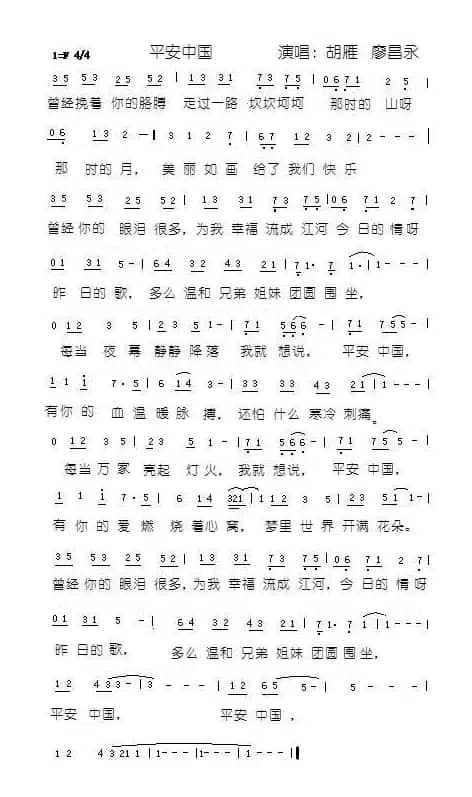 1=F 4/4 平安中国 演唱：胡雁 廖昌永
3 5 5 3 | 2 5 5 2 | 1 3 3 1 | 7 3 7 5 | 0 6 7 1 2 5 |
曾经挽着 你的胳膊 走过一路 坎坎坷坷 那时的 山呀
0 6 1 3 2 — | 3 1 2 7 | 6 7 1 2 3 2 | 2 — — — |
那 时的 月， 美 丽 如 画 给了 我们 快 乐
3 5 5 3 2 5 5 2 | 1 3 3 1 7 3 7 5 | 0 6 7 1 2 7 |
曾经 你的 眼泪 很多，为我 幸福 流成 江河 今 日的 情呀
0 1 3 1 5 - | 6 4 3 2 4 3 2 1 | 7 1· 7 1· | 1 - - - |
昨 日的 歌，多么 温和 兄弟 姐妹 团圆 围 坐，
0 1 2 3 5 | 1 2 2 3 5 1 - | 7 1 5 6 6 - | 7 1 7 5 5 - |
每当 夜 幕 静静 降 落 我就 想说， 平安 中国，
1 1 i 7 · 5 | 6 1 4 3 - | 3 3 3 3 4 3 2 1 |
有你 的 血 温 暖 脉 搏， 还怕 什么 寒冷 刺痛。
0 1 2 3 5 | 2 3 5 1 - | 7 1 5 6 6 - | 7 1 7 5 5 - |
每当 万 家 亮起 灯 火，我就 想说， 平安 中国，
1 1 i 7 · 5 | 6 1 4 3 2 1 | 1 1 2 3 5 | 2 3 5 1 1 - |
有 你 的 爱 燃 烧 着心 窝， 梦里 世 界 开满 花朵。
3 5 5 3 2 5 5 2 | 1 3 3 1 7 3 7 5 | 0 6 7 1 2 7 |
曾经 你的 眼泪 很多，为我 幸福 流成 江河，今 日的 情 呀
0 1 3 1 5 - | 6 4 3 2 4 3 2 1 | 7 1· 7 1 | 1 - - |
昨 日的 歌， 多么 温和 兄弟 姐妹 团圆 围 坐，
1 2 4 3 3 - | 3 - - - | 1 2 6 5 5 - - - |
平安 中国， 平安 中国 ，
1 2 4 3 2 1 1 | 1 - - - | 1 - - - | 1 - - ‖